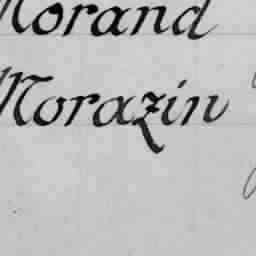 Morand
Morazin